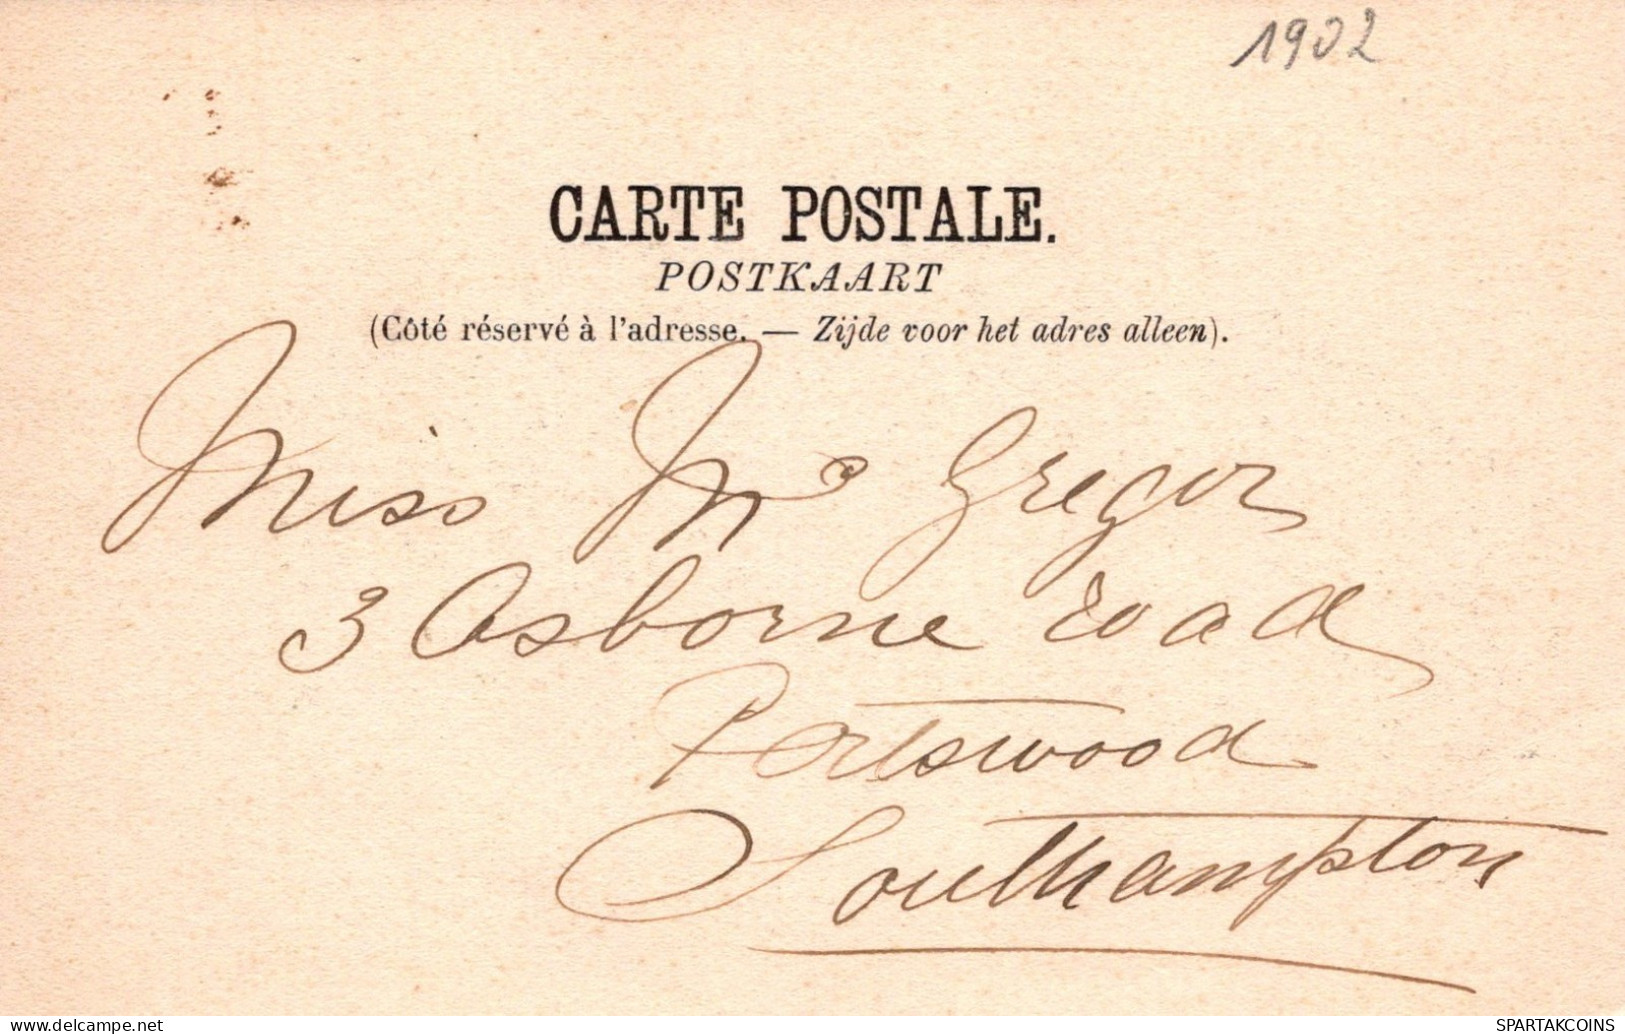 1902
CARTE POSTALE.
POSTKAART
(Côté réservé à l'adresse. — Zijde voor het adres alleen).
Miss Mc Gregor
3 Osborne road
Portswood
Southampton
www.delcampe.net
SPARTAKCOINS